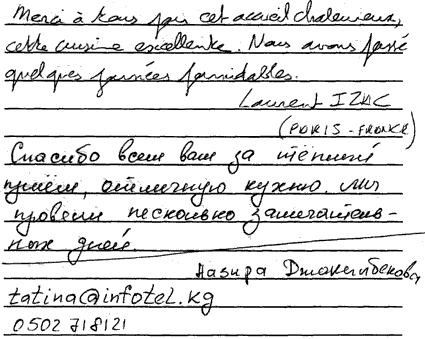 Merci à tous pour cet accueil chaleureux,
cette cuisine excellente. Nous avons passé
quelques journées formidables.
Laurent IZAC
(PARIS - FRANCE)
Спасибо всем вам за теплый
прием, отличную кухню. Мы
провели несколько замечатель-
ных дней
Назира Джакыпбекова
tatina@infotel.kg
0502 718121